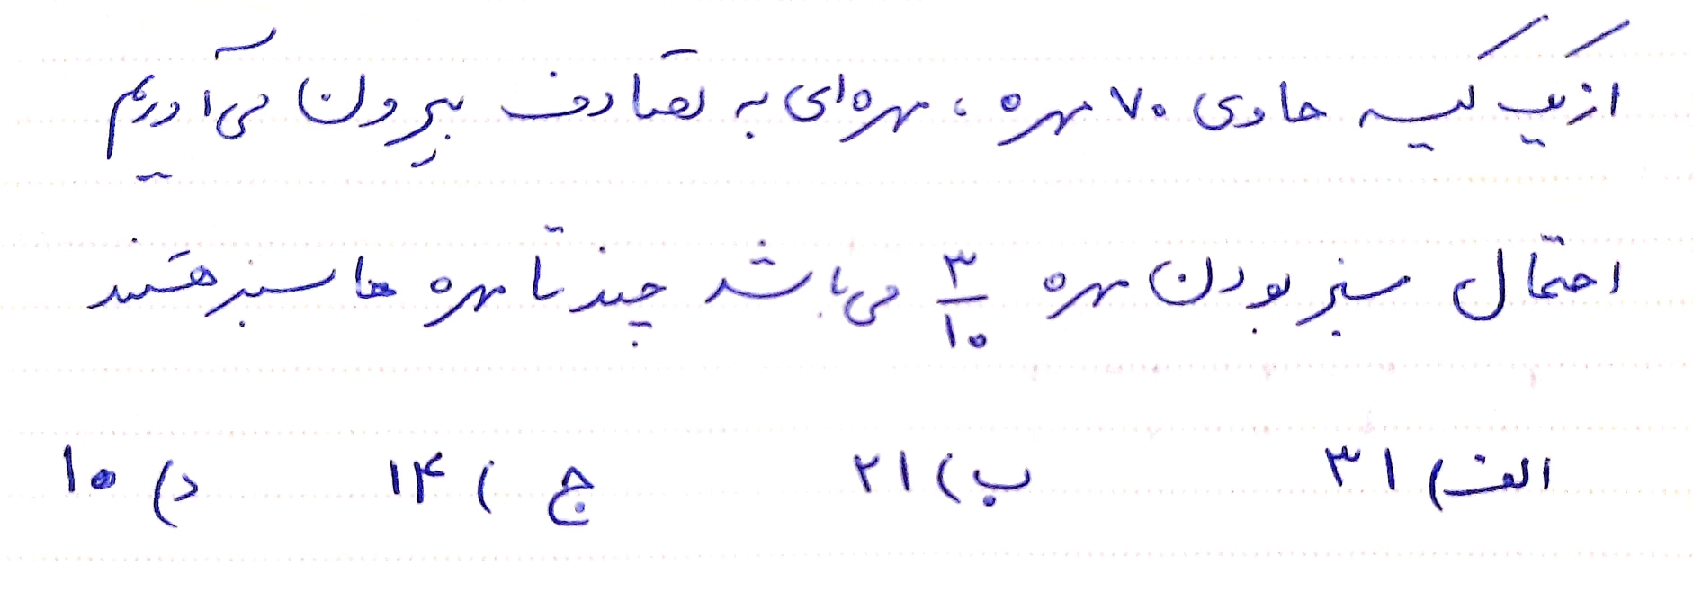 از یک کیسه حاوی ۷۰ مهره ، مهره‌ای به تصادف بیرون می‌آوریم
احتمال سبز بودن مهره ۳/۱۰ می‌باشد چند تا مهره ها سبز هستند
الف) ۳۱ ب) ۲۱ ج) ۱۴ د) ۱۰